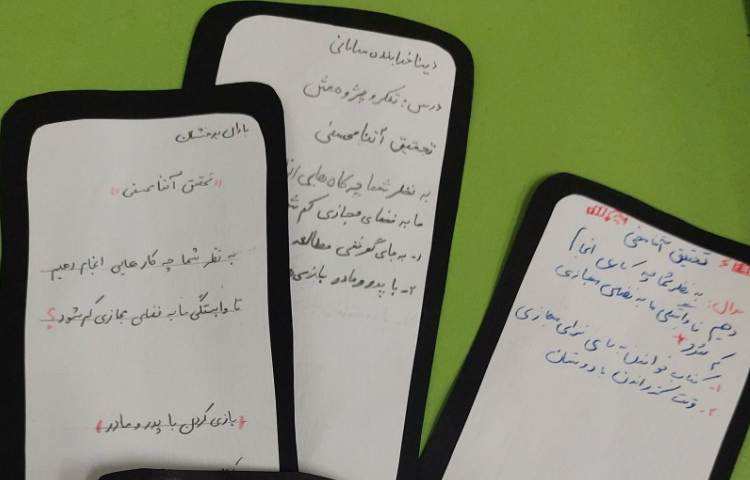 باران
«تحقیق آتنا محسنی»
به نظر شما چه کارهایی انجام دهیم
تا وابستگی ما به فضای مجازی کم شود؟
بازی کردن با پدر و مادر
دینا خدابنده
درس: تفکر و پژوهش
تحقیق آتنا محسنی
به نظر شما چه کارهایی ان
ما به فضای مجازی کم ش
۱- به جای گوشی مطالعه
۲- با پدر و مادر بازی
تحقیق آتنا محسنی
سوال: به نظر شما چه کارهایی انجام
دهیم تا وابستگی ما به فضای مجازی
کم شود
۱- کتاب خواندن به جای فضای مجازی
۲- وقت گذراندن با دوستان